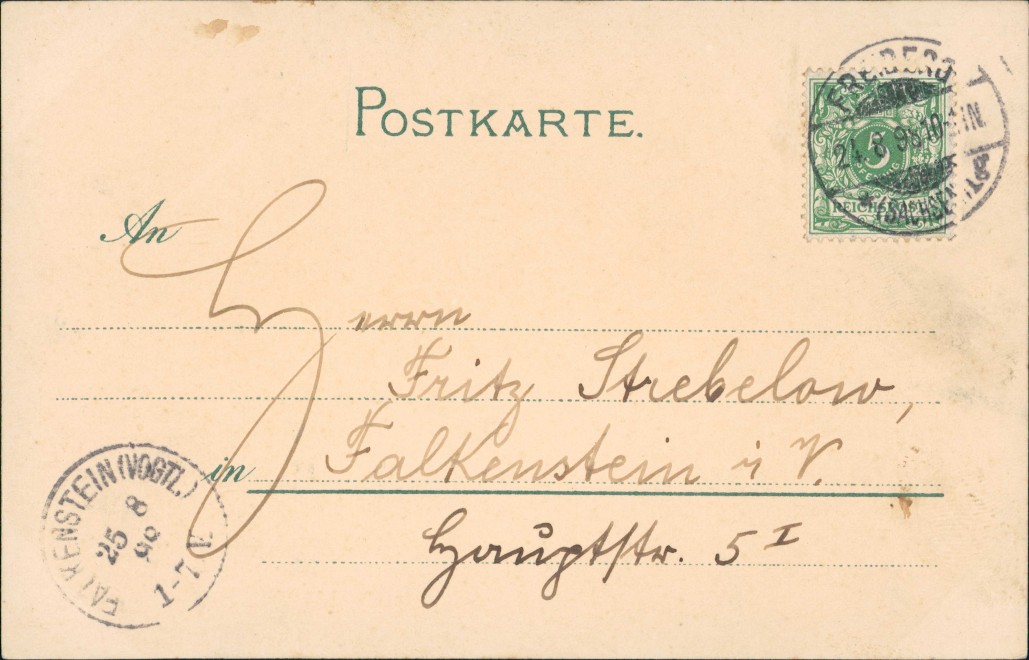 POSTKARTE.
FREIBERG
24 8 98 10-11N
* (SACHSEN)
5
PFENNIG
REICHSPOST
An
Herrn
Fritz Strebelow,
in Falkenstein i V.
Hauptstr. 5 I
FALKENSTEIN (VOGTL.)
25 8
98
1-7 V.